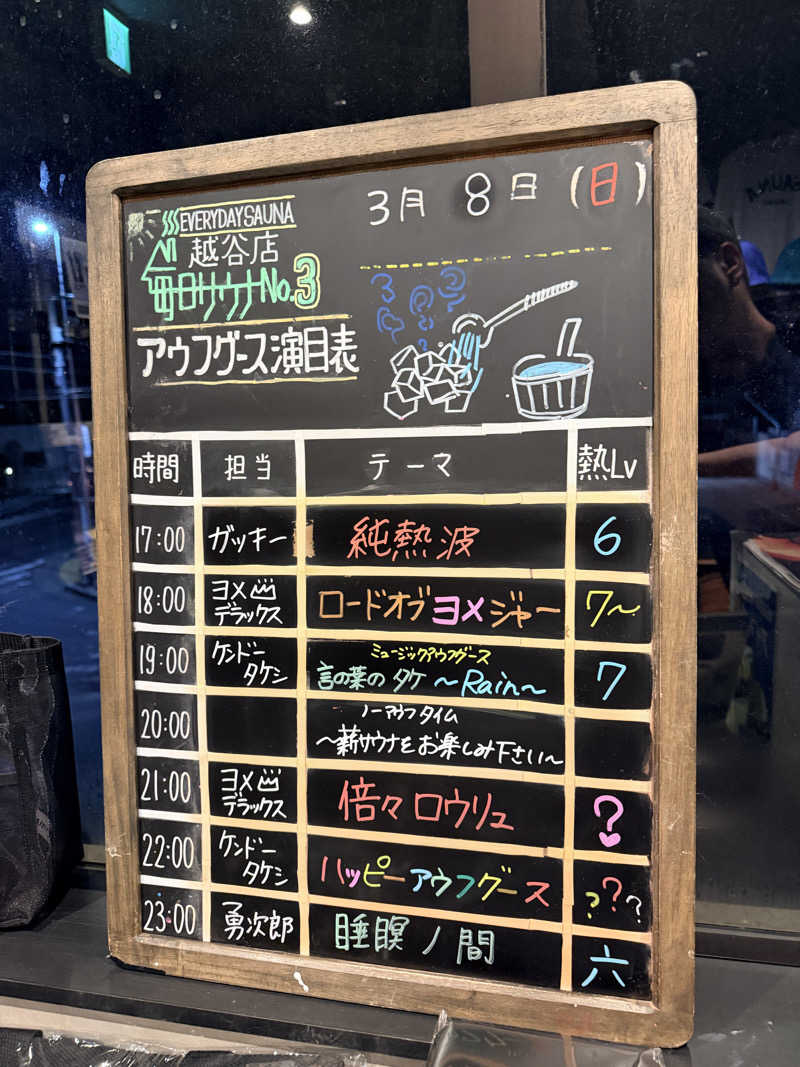 EVERYDAY SAUNA
越谷店
毎日サウナNo.3
アウフグース演目表
3月 8日 (日)
時間 担当 テーマ 熱Lv
17:00 ガッキー 純熱波 6
18:00 ヨメ デラックス ロードオブヨメジャー 7〜
19:00 ケンドー タケシ ミュージックアウフグース
言の葉のタケ 〜Rain〜 7
20:00 ノーアウフタイム
〜薪サウナをお楽しみ下さい〜
21:00 ヨメ デラックス 倍々ロウリュ ?
22:00 ケンドー タケシ ハッピーアウフグース ???
23:00 勇次郎 睡瞑ノ間 六